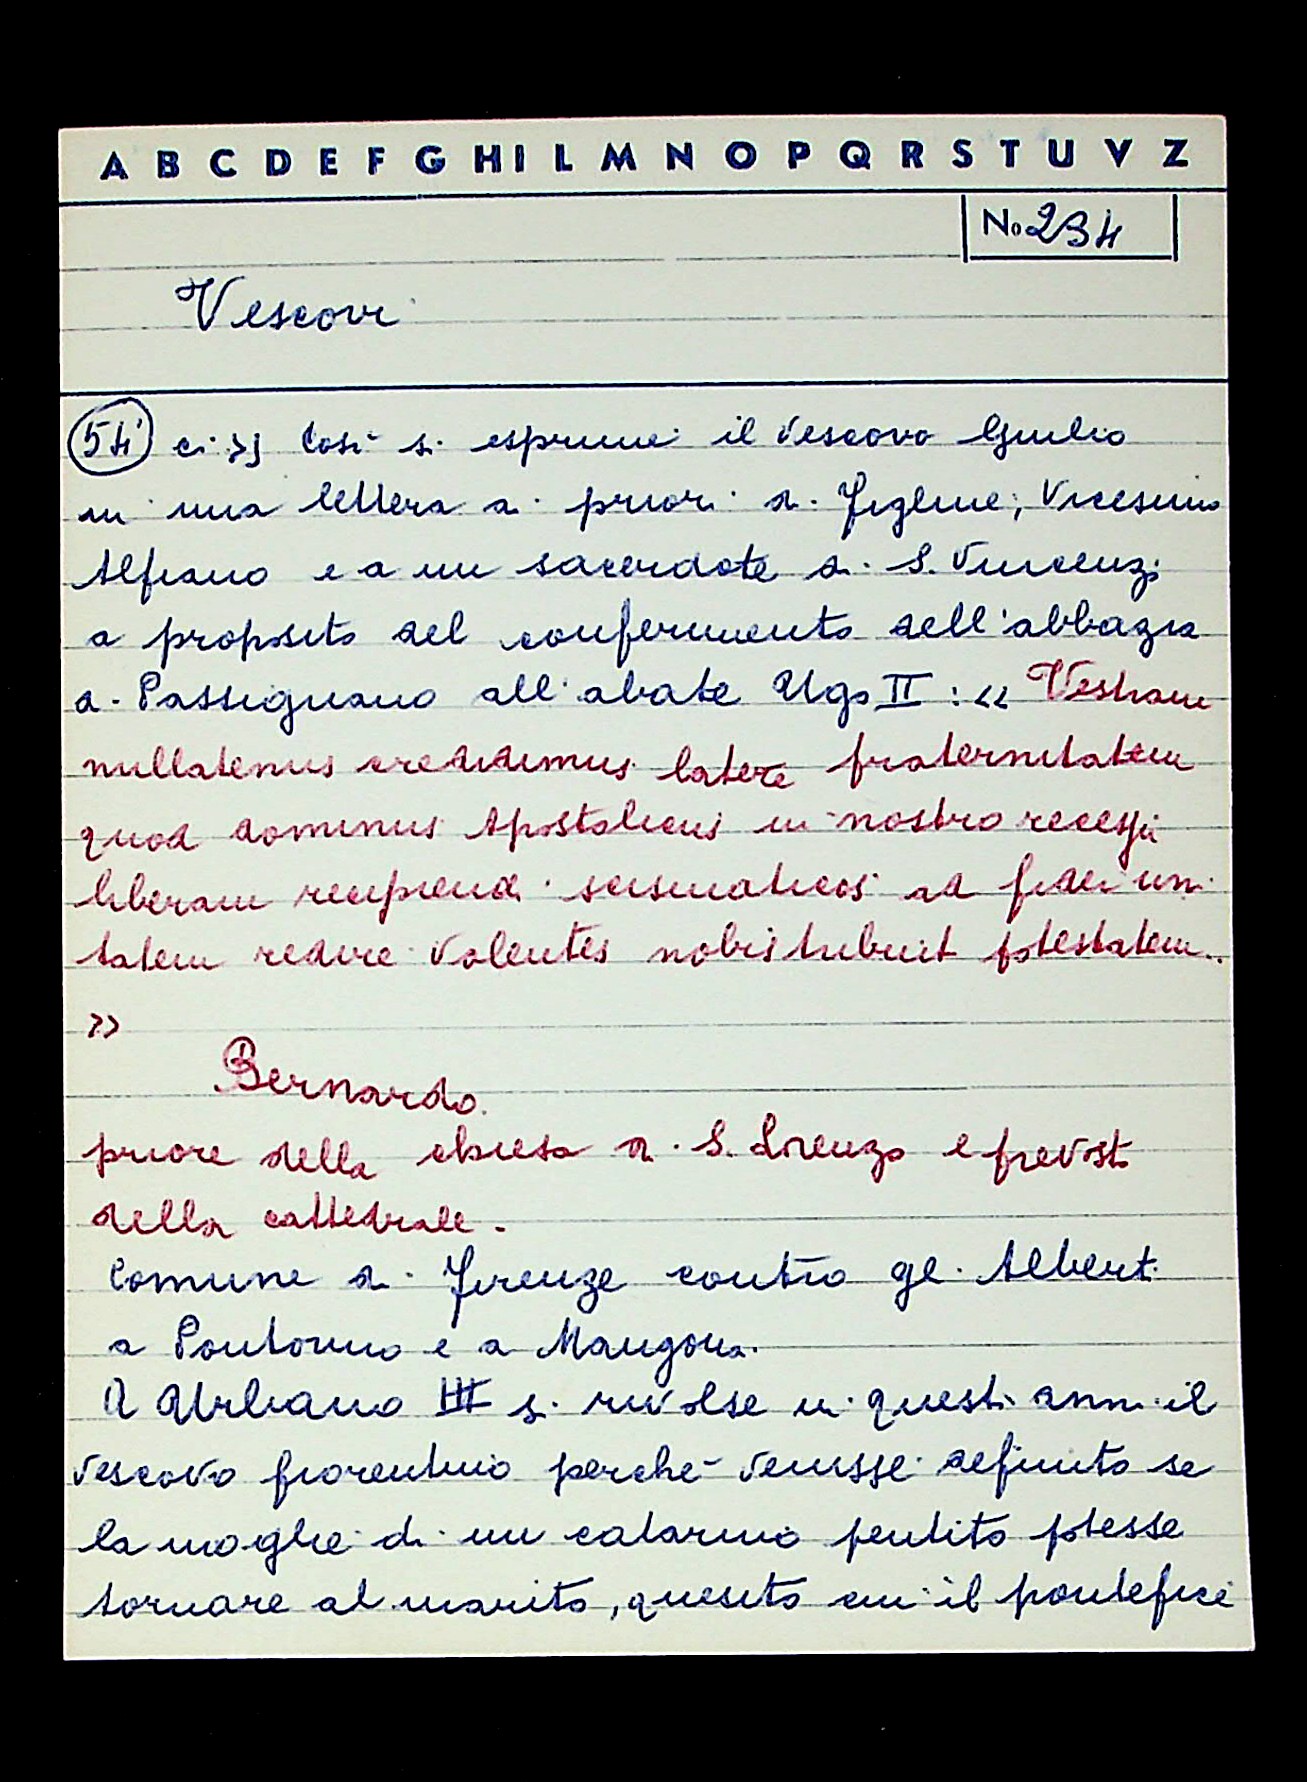 A B C D E F G H I L M N O P Q R S T U V Z
No 234
Vescovi
54 ci >> Così si esprime il vescovo Giulio
in una lettera ai priori di Figline, Vicesimo
Alfiano e a un sacerdote di S. Vincenzo
a proposito del conferimento dell'abbazia
di Passignano all'abate Ugo II : << Vestram
nullatenus credidimus latere fraternitatem
quod dominus Apostolicus in nostro recessu
liberam recipiendi scismaticos ad fidei uni
tatem redire volentes nobis tribuit potestatem..
>>
Bernardo
priore della chiesa di S. Lorenzo e prevosto
della cattedrale.
Comune di Firenze contro gli Alberti
a Pontormo e a Mangona.
A Urbano III si rivolse in questi anni il
vescovo fiorentino perchè venisse definito se
la moglie di un catarino pentito potesse
tornare al marito, quesito cui il pontefice